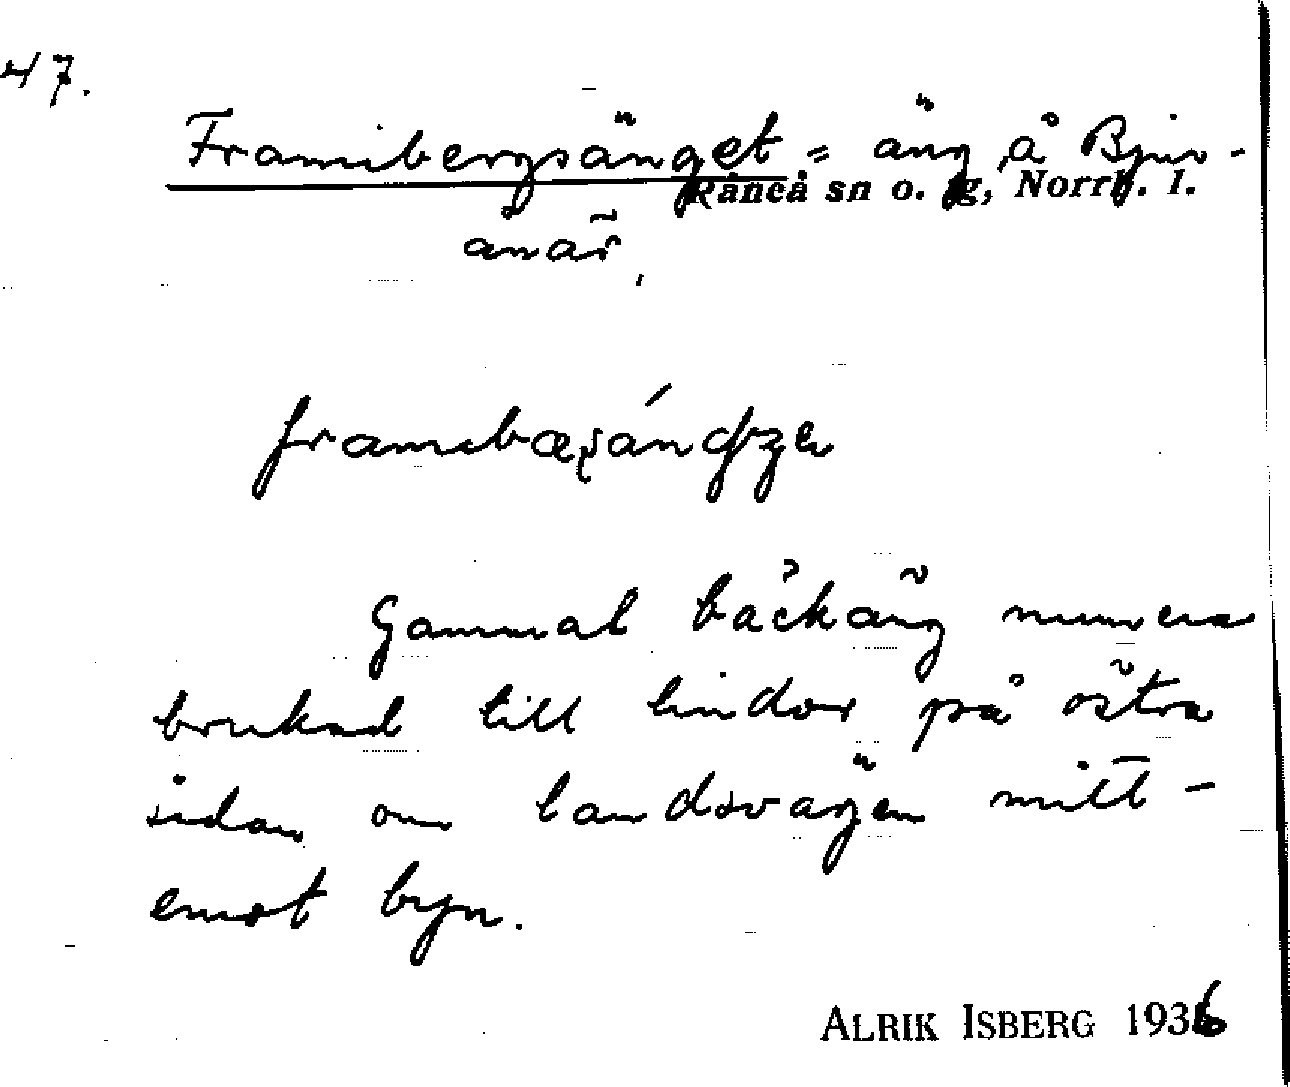 47.
Framibergsänget = äng å Bjur-
Råneå sn o. sg, Norrb. l.
anäs,
Gammal bäckäng numera
brukad till lindor på östra
sidan om landsvägen mitt-
emot byn.
ALRIK ISBERG 1936